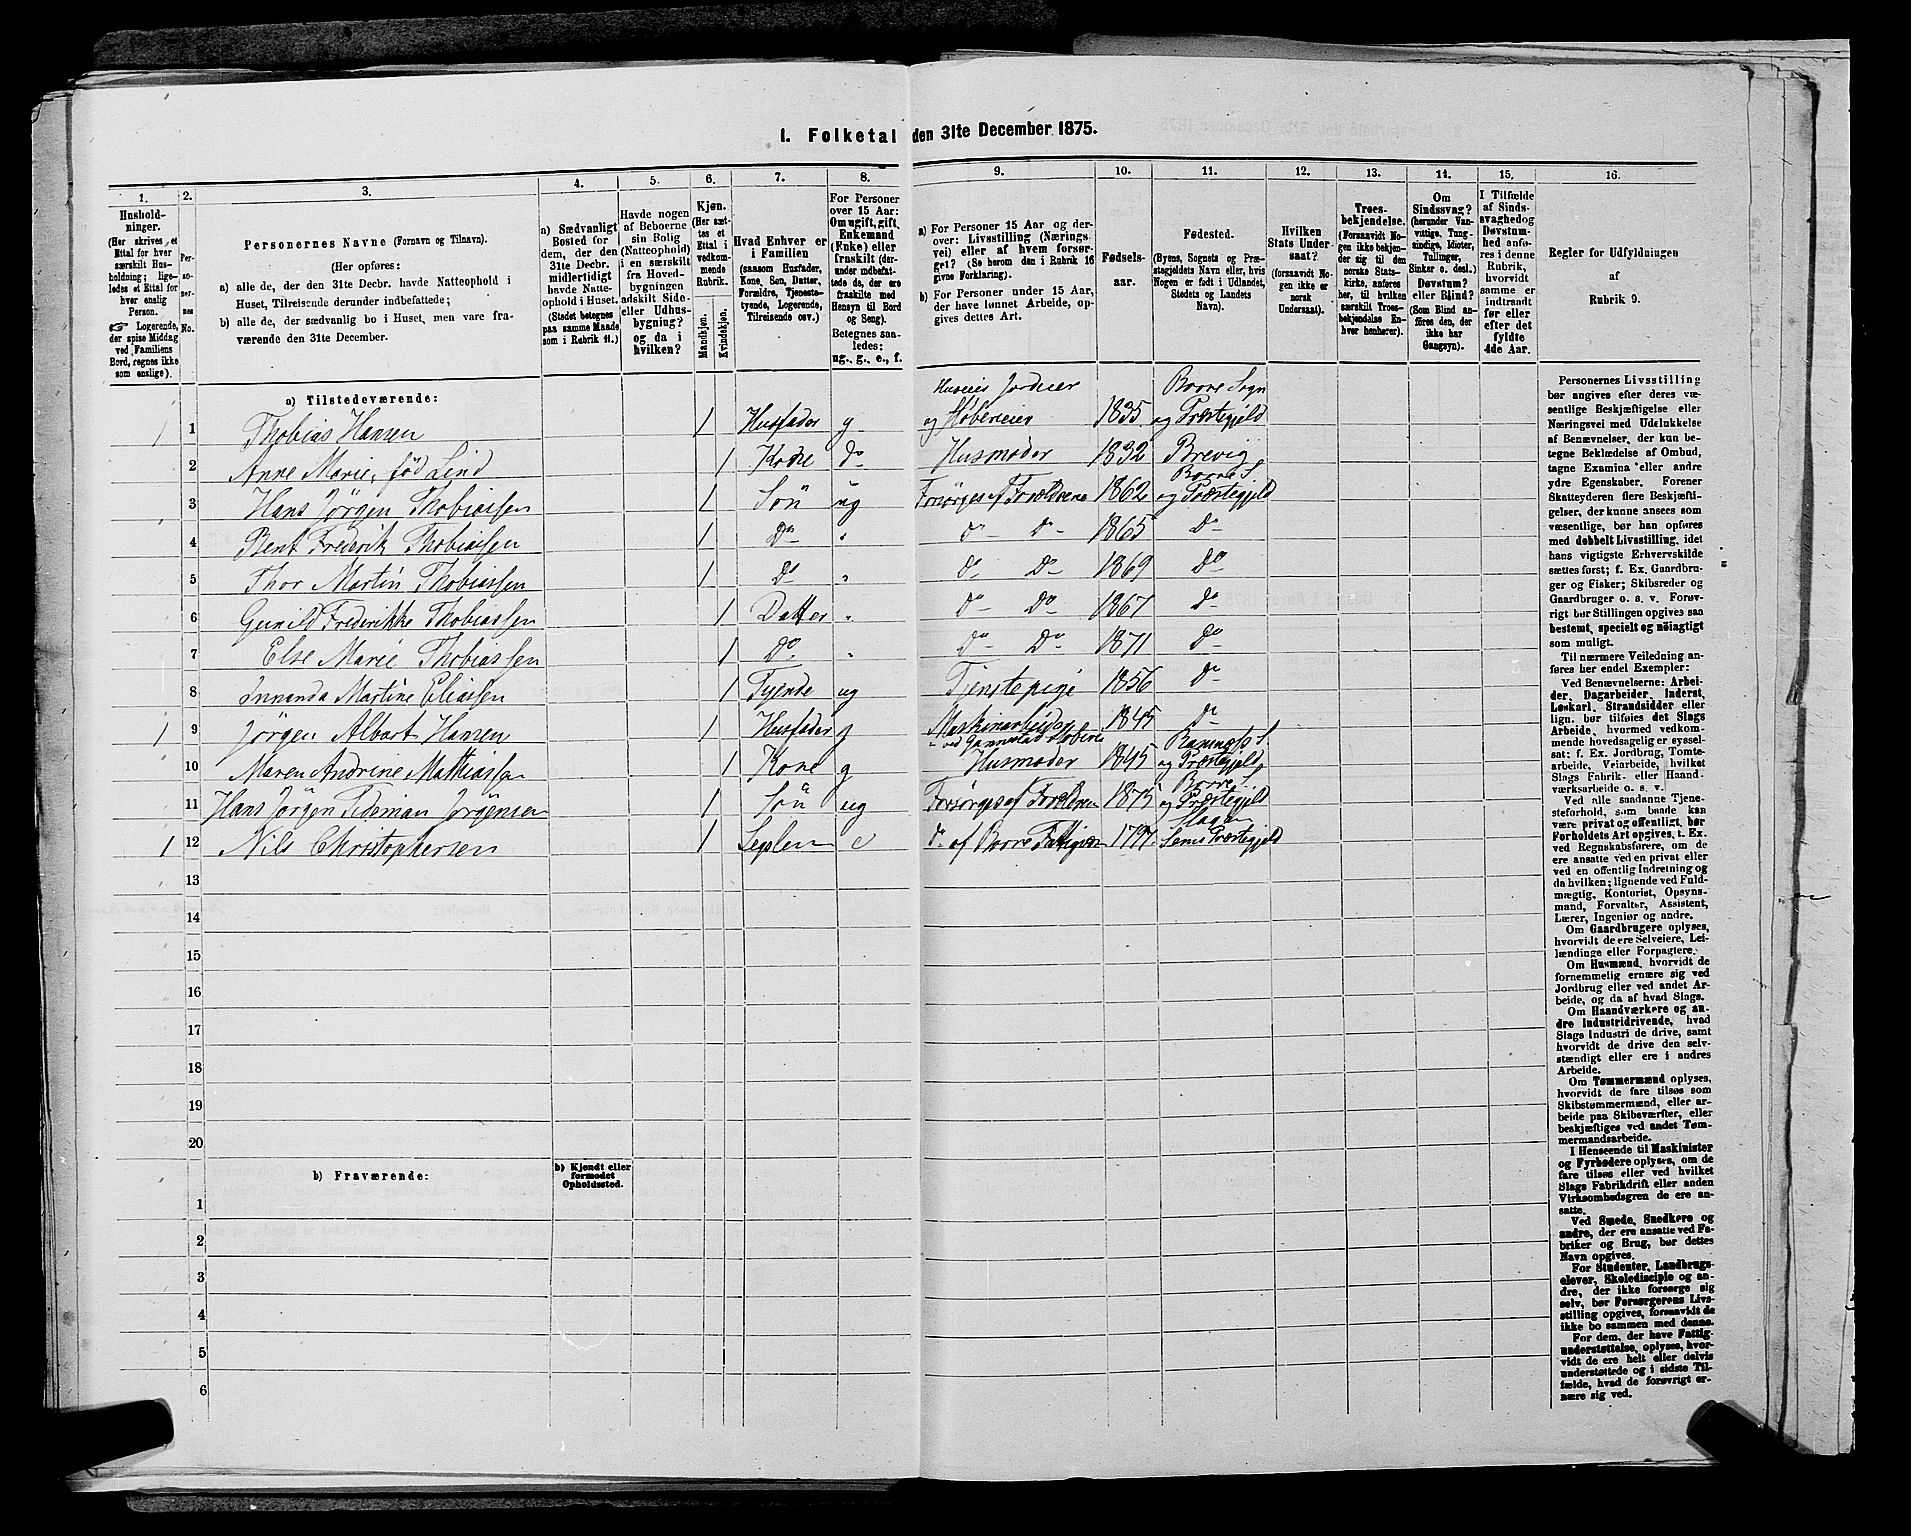 1. Folketal den 31te December 1875.
1.
2.
3.
4.
5.
6.
7.
8.
9.
10.
11.
12.
13.
14.
15.
16.
Hushold-
ninger.
(Her skrives et
Ettal for hver
særskilt Hus-
holdning; lige-
ledes et Ettal for
hver enslig
Person.
☞ Logerende,
der spise Middag
ved Familiens
Bord, regnes ikke
som enslige).
Per-
so-
ner-
nes
No.
Personernes Navne (Fornavn og Tilnavn).
(Her opføres:
a) alle de, der den 31te Decbr. havde Natteophold i
Huset, Tilreisende derunder indbefattede;
b) alle de, der sædvanlig bo i Huset, men vare fra-
værende den 31te December.
a) Sædvanligt
Bosted for
dem, der den
31te Decbr.
midlertidigt
havde Natte-
ophold i Huset.
(Stedet betegnes
paa samme Maade
som i Rubrik 11.)
Havde nogen
af Beboerne
sin Bolig
(Natteophold)
i en særskilt
fra Hoved-
bygningen
adskilt Side-
eller Udhus-
bygning?
og da i
hvilken?
Kjøn.
(Her sæt-
tes et
Ettal i
vedkom-
mende
Rubrik.
Mandkjøn.
Kvindekjøn.
Hvad Enhver er
i Familien
(saasom Husfader,
Kone, Søn, Datter,
Forældre, Tjeneste-
tyende, Logerende,
Tilreisende osv.)
For Personer
over 15 Aar:
Om ugift, gift,
Enkemand
(Enke) eller
fraskilt (der-
under indbefat-
tede de, der ere
fraskilte med
Hensyn til Bord
og Seng).
Betegnes saa-
ledes:
ug., g., e., f.
a) For Personer 15 Aar og der-
over: Livsstilling (Nærings-
vei) eller af hvem forsør-
get? (Se herom den i Rubrik 16
givne Forklaring).
b) For Personer under 15 Aar,
der have lønnet Arbeide, op-
gives dettes Art.
Fødsels-
aar.
Fødested.
(Byens, Sognets og Præ-
stegjeldets Navn eller, hvis
Nogen er født i Udlandet,
Stedets og Landets
Navn).
Hvilken
Stats Under-
saat?
(forsaavidt No-
gen ikke er
norsk
Undersaat).
Troes-
bekjendelse.
(Forsaavidt No-
gen ikke bekjen-
der sig til den
norske Stats-
kirke, anføres
her, til hvilken
særskilt Troes-
bekjendelse En-
hver henhører).
Om
Sindssvag?
(herunder Van-
vittige, Tung-
sindige, Idioter,
Tullinger,
Sinker o. desl.)
Døvstum?
eller Blind?
(Som Blind an-
føres den, der
ikke har
Gangsyn).
I Tilfælde
af Sinds-
svaghed og
Døvstum-
hed anfø-
res i denne
Rubrik,
hvorvidt
samme er
indtraadt
før eller
efter det
fyldte
4de Aar.
Regler for Udfyldningen
af
Rubrik 9.
a) Tilstedeværende:
1 1 Thobias Hansen 1 Husfader g Huseier Jordeier og 1835 Borre Sogn og Præstegjeld
2 Anne Marie, fød Lind 1 Kone do Husmoder 1832 Brevig
3 Hans Jørgen Thobiassen 1 Søn ug Forsørges af Forældrene 1862 Borre S. og Præstegjeld
4 Bent Frederik Thobiassen 1 Do " do Do 1865 Do
5 Thor Martin Thobiassen 1 Do " do Do 1869 Do
6 Gunild Frederikke Thobiassen 1 Datter " do Do 1867 Do
7 Else Marie Thobiassen 1 Do " Do Do 1871 Do
8 Martine Eliassen 1 Tyende ug Tjenstepige 1856 Do
1 9 Jørgen Albert Hansen 1 Husfader g Maskinarbeider ved 1845 Do
10 Maren Andrine Mathiassen 1 Kone g Husmoder 1845 Ramnæs S. og Præstegjeld
11 Hans Jørgen Tideman Jørgensen 1 Søn ug Forsørges af Forældrene 1875 Borre S. og Præstegjeld
1 12 Nils Christophersen 1 e do af Borre 1797 Slagen Sems Præstegjeld
13
14
15
16
17
18
19
20
b) Fraværende:
b) Kjendt eller
formodet
Opholdssted.
1
2
3
4
5
6
Personernes Livsstilling
bør angives efter deres væ-
sentlige Beskjæftigelse eller
Næringsvei med Udelukkelse
af Benævnelser, der kun be-
tegne Beklædelse af Ombud,
tagne Examina eller andre
ydre Egenskaber. Forener
Skatteyderen flere Beskjæfti-
gelser, der kunne ansees som
væsentlige, bør han opføres
med dobbelt Livsstilling, idet
hans vigtigste Erhvervskilde
sættes først; f. Ex. Gaardbru-
ger og Fisker; Skibsreder og
Gaardbruger o. s. v. Forøv-
rigt bør Stillingen opgives saa
bestemt, specielt og nøiagtigt
som muligt.
Til nærmere Veiledning an-
føres her endel Exempler:
Ved Benævnelserne: Arbei-
der, Dagarbeider, Inderst,
Løskarl, Strandsidder eller
lign. bør tilføies det Slags
Arbeide, hvormed vedkom-
mende hovedsagelig er syssel-
sat; f. Ex. Jordbrug, Tomte-
arbeide, Veiarbeide, hvilket
Slags Fabrik- eller Haand-
værksarbeide o. s. v.
Ved alle saadanne Tjene-
steforhold, som baade kan
være privat og offentligt, bør
Forholdets Art opgives, t. Ex.
ved Regnskabsførere, om de
ere ansatte ved en privat eller
ved en offentlig Indretning og
da hvilken; lignende ved Fuld-
mægtig, Kontorist, Opsyns-
mand, Forvalter, Assistent,
Lærer, Ingeniør og andre.
Om Gaardbrugere oplyses,
hvorvidt de ere Selveiere, Lei-
lændinge eller Forpagtere.
Om Husmænd, hvorvidt de
fornemmelig ernære sig ved
Jordbrug eller ved andet Ar-
beide, og da af hvad Slags.
Om Haandværkere og an-
dre Industridrivende, hvad
Slags Industri de drive, samt
hvorvidt de drive den selv-
stændigt eller ere i andres
Arbeide.
Om Tømmermænd oplyses,
hvorvidt de fare tilsøs som
Skibstømmermænd, eller ar-
beide paa Skibsværfter, eller
beskjæftiges ved andet Tøm-
mermandsarbeide.
I Henseende til Maskinister
og Fyrbødere oplyses, om de
fare tilsøs eller ved hvilket
Slags Fabrikdrift eller anden
Virksomhedsgren de ere an-
satte.
Ved Smede, Snedkere og
andre, der ere ansatte ved Fa-
briker og Brug, bør dettes
Navn opgives.
For Studenter, Landbrugs-
elever, Skoledisciple og an-
dre, der ikke forsørge sig
selv, bør Forsørgerens Livs-
stilling opgives, forsaavidt de
ikke bo sammen med denne.
For dem, der have Fattig-
understøttelse, oplyses, hvor-
vidt de ere helt eller delvis
understøttede og i sidste Til-
fælde, hvad de forøvrigt er-
nære sig ved.